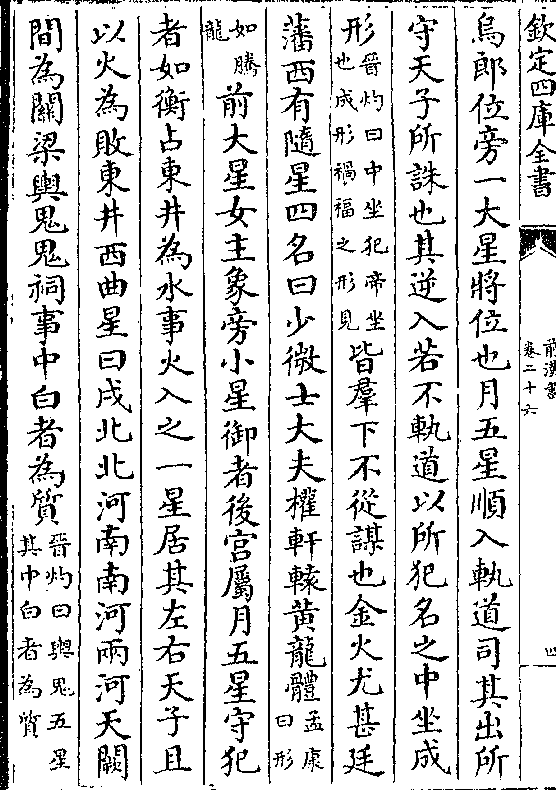 欽定四庫全書
前漢書
卷二十六
四
烏郎位旁一大星將位也月五星順入軌道司其出所
守天子所誅也其逆入若不軌道以所犯名之中坐成
形晉灼曰中坐犯帝坐也成形禍福之形見皆羣下不從謀也金火尤甚廷
藩西有隨星四名曰少微士大夫權軒轅黃龍體孟康曰形
如騰龍前大星女主象旁小星御者後宮屬月五星守犯
者如衡占東井為水事火入之一星居其左右天子且
以火為敗東井西曲星曰戌北北河南南河兩河天闕
間為關梁輿鬼鬼祠事中白者為質晉灼曰輿鬼五星其中白者為質